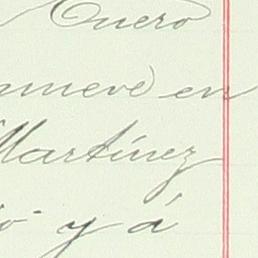 Enero
nueve en
Martínez
y á